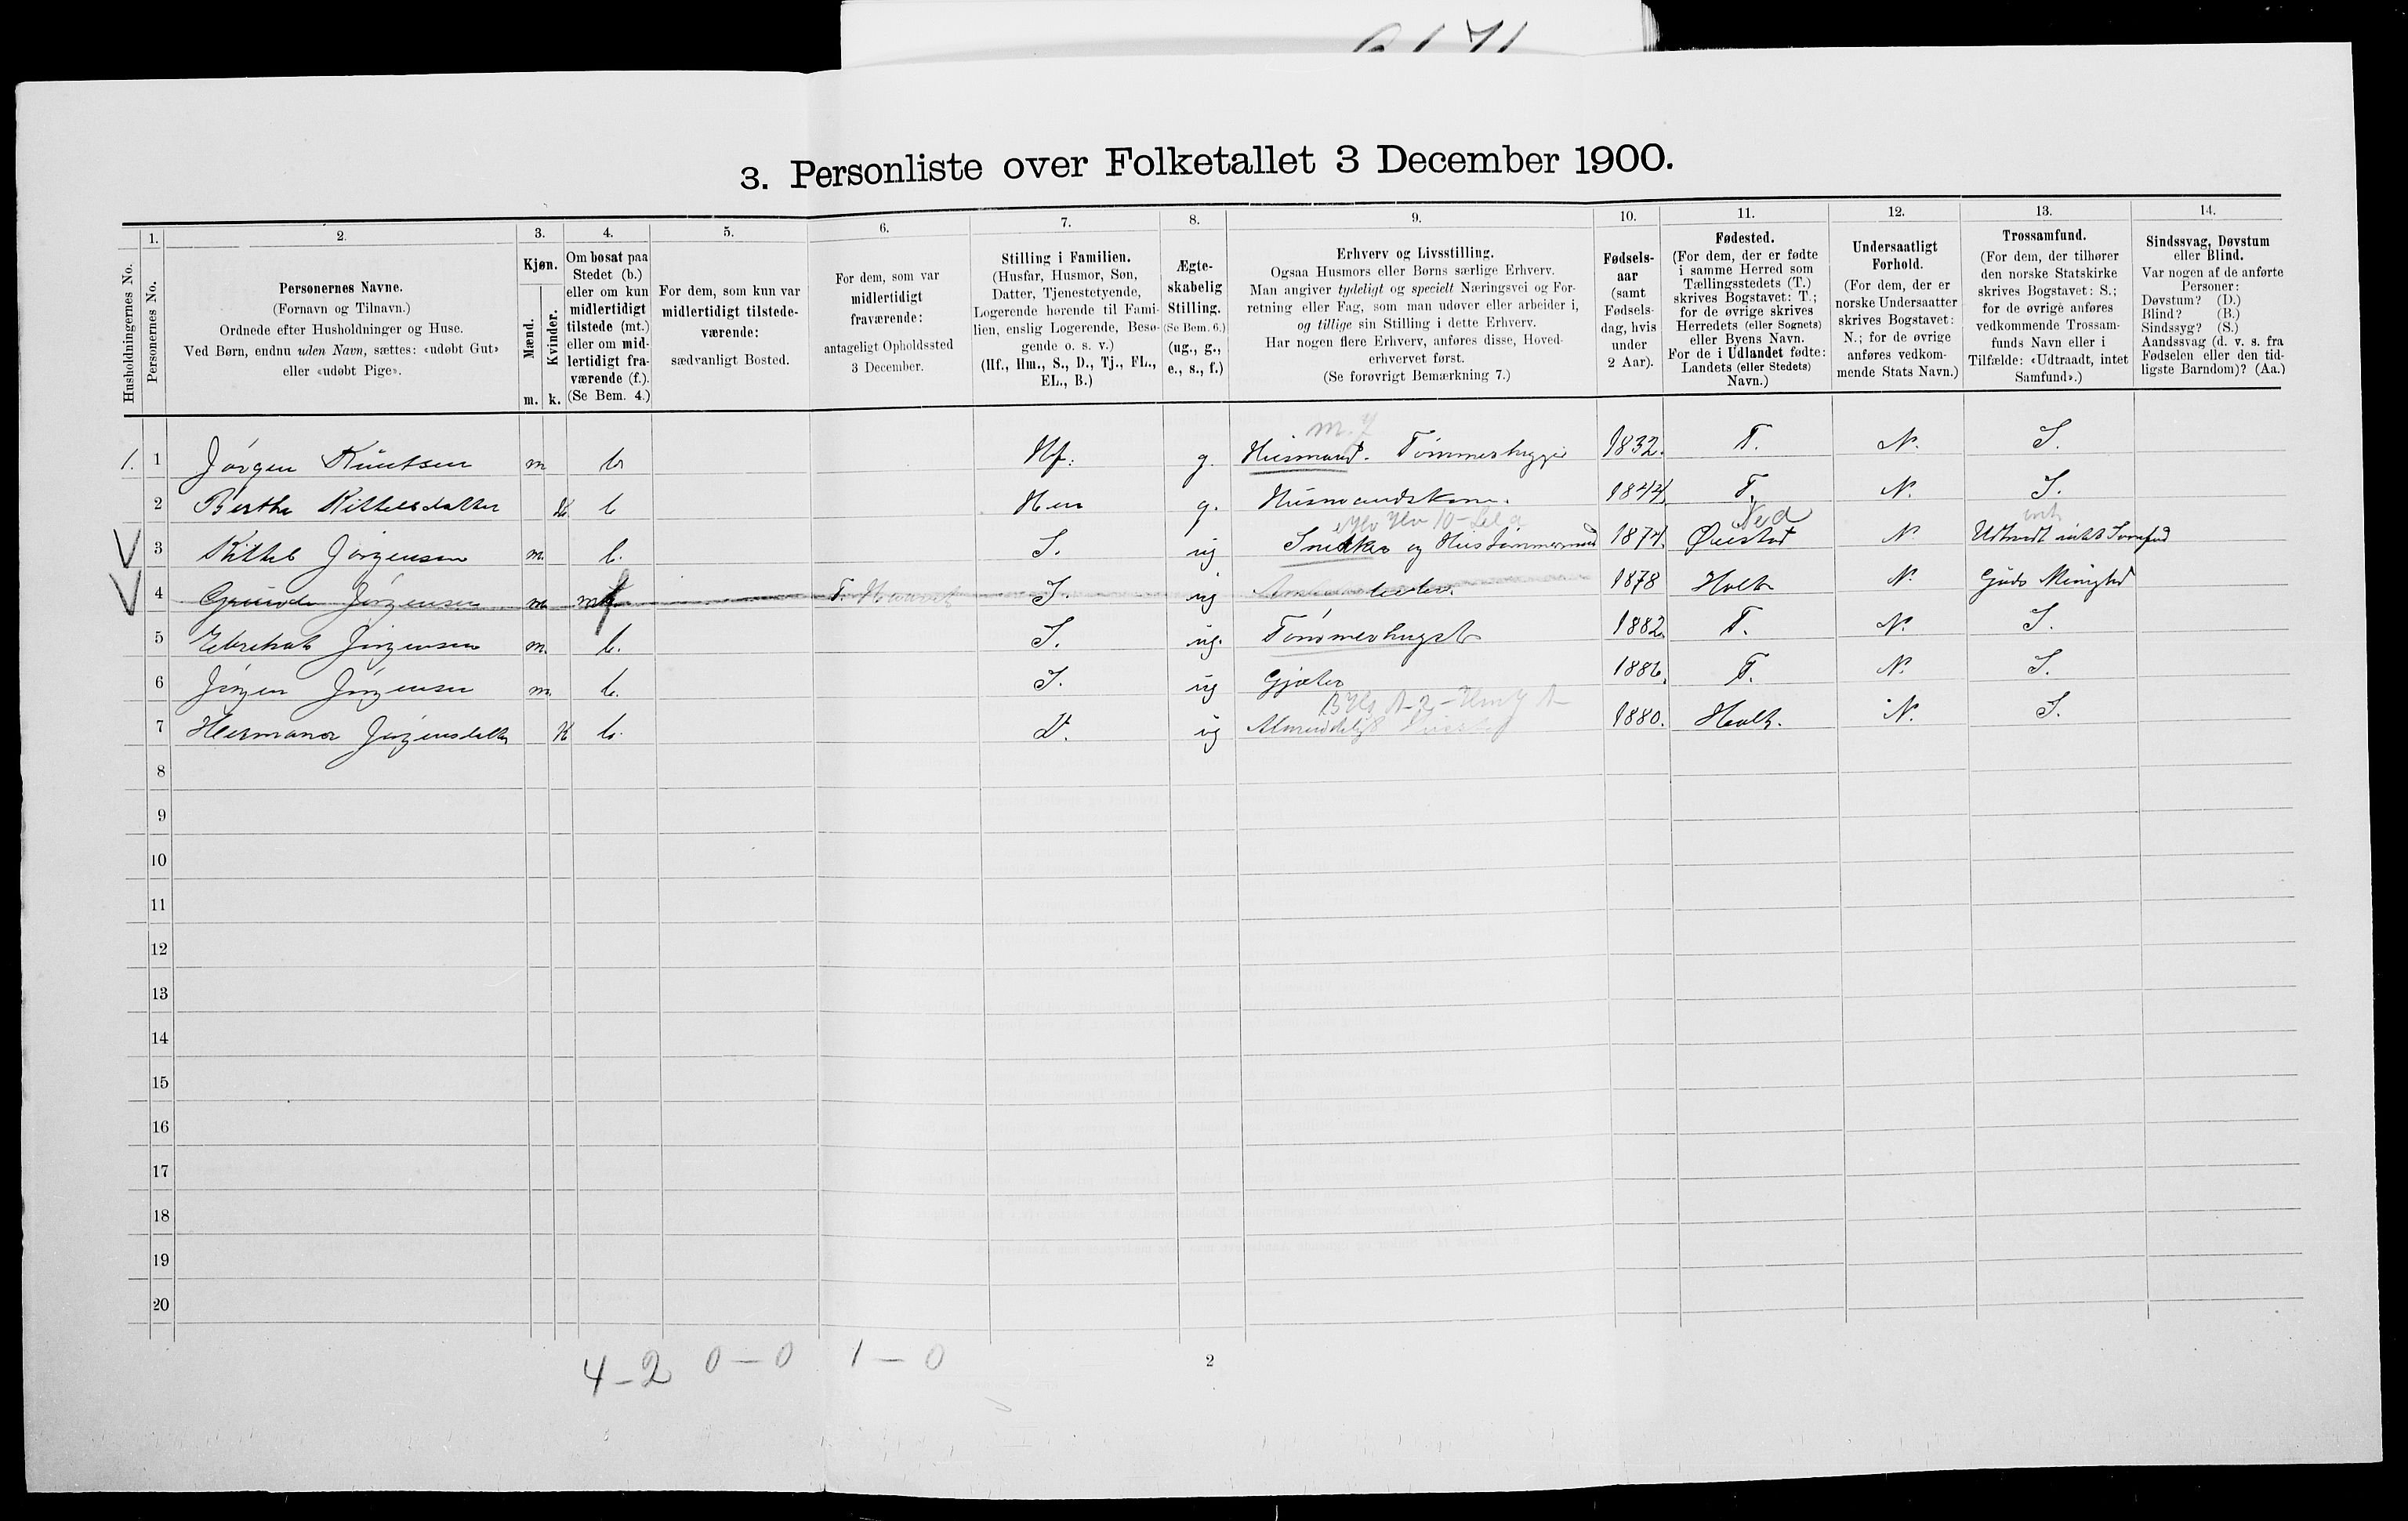 3. Personliste over Folketallet 3 December 1900.
Husholdningernes No.
1.
Personernes No.
2.
Personernes Navne.
(Fornavn og Tilnavn.)
Ordnede efter Husholdninger og Huse.
Ved Børn, endnu uden Navn, sættes: «udøbt Gut»
eller «udøbt Pige».
3.
Kjøn.
Mænd.
Kvinder.
m. k.
4.
Om bosat paa
Stedet (b.)
eller om kun
midlertidigt
tilstede (mt.)
eller om mid-
lertidigt fra-
værende (f.).
(Se Bem. 4.)
5.
For dem, som kun var
midlertidigt tilstede-
værende:
sædvanligt Bosted.
6.
For dem, som var
midlertidigt
fraværende:
antageligt Opholdssted
3 December.
7.
Stilling i Familien.
(Husfar, Husmor, Søn,
Datter, Tjenestetyende,
Logerende hørende til Fami-
lien, enslig Logerende, Besø-
gende o. s. v.)
(Hf., Hm., S., D., Tj., FL.,
EL., B.)
8.
Ægte-
skabelig
Stilling.
(Se Bem. 6.)
(ug., g.,
e., s., f.)
9.
Erhverv og Livsstilling.
Ogsaa Husmors eller Børns særlige Erhverv.
Man angiver tydeligt og specielt Næringsvei og For-
retning eller Fag, som man udøver eller arbeider i,
og tillige sin Stilling i dette Erhverv.
Har nogen flere Erhverv, anføres disse, Hoved-
erhvervet først.
(Se forøvrigt Bemærkning 7.)
10.
Fødsels-
aar
(samt
Fødsels-
dag, hvis
under
2 Aar).
11.
Fødested.
(For dem, der er fødte
i samme Herred som
Tællingsstedets (T.)
skrives Bogstavet: T.;
for de øvrige skrives
Herredets (eller Sognets)
eller Byens Navn.
For de i Udlandet fødte:
Landets (eller Stedets)
Navn.)
12.
Undersaatligt
Forhold.
(For dem, der er
norske Undersaatter
skrives Bogstavet:
N.; for de øvrige
anføres vedkom-
mende Stats Navn.)
13.
Trossamfund.
(For dem, der tilhører
den norske Statskirke
skrives Bogstavet: S.;
for de øvrige anføres
vedkommende Trossam-
funds Navn eller i
Tilfælde: «Udtraadt, intet
Samfund».)
14.
Sindssvag, Døvstum
eller Blind.
Var nogen af de anførte
Personer:
Døvstum? (D.)
Blind? (B.)
Sindssyg? (S.)
Aandssvag (d. v. s. fra
Fødselen eller den tid-
ligste Barndom)? (Aa.)
1. 1 Jørgen Knutsen m b Hf. g. Husmand. Tømmerhugger 1832. T. N. S.
2 Berthe Kittelsdatter k b Hm g. Husmandskone. 1844. T. N. S.
3 Kittel Jørgensen m. b. S. ug Snedker og Hustømmermand 1874. Øiestad N Udtraadt intet Samfund
4 Jørgensen m f S. ug 1878 Holt N. Guds Menighed
5 Jørgensen m. b. S. ug. Tømmerhugst 1882. T. N. S.
6 Jørgen Jørgensen m. b. S. ug Gjæter 1886. T. N. S.
7 Hermana Jørgensdatter K b. D. ug Almindeligt 1880. Holt. N. S.
8
9
10
11
12
13
14
15
16
17
18
19
20
4-2 0-0 1-0
2